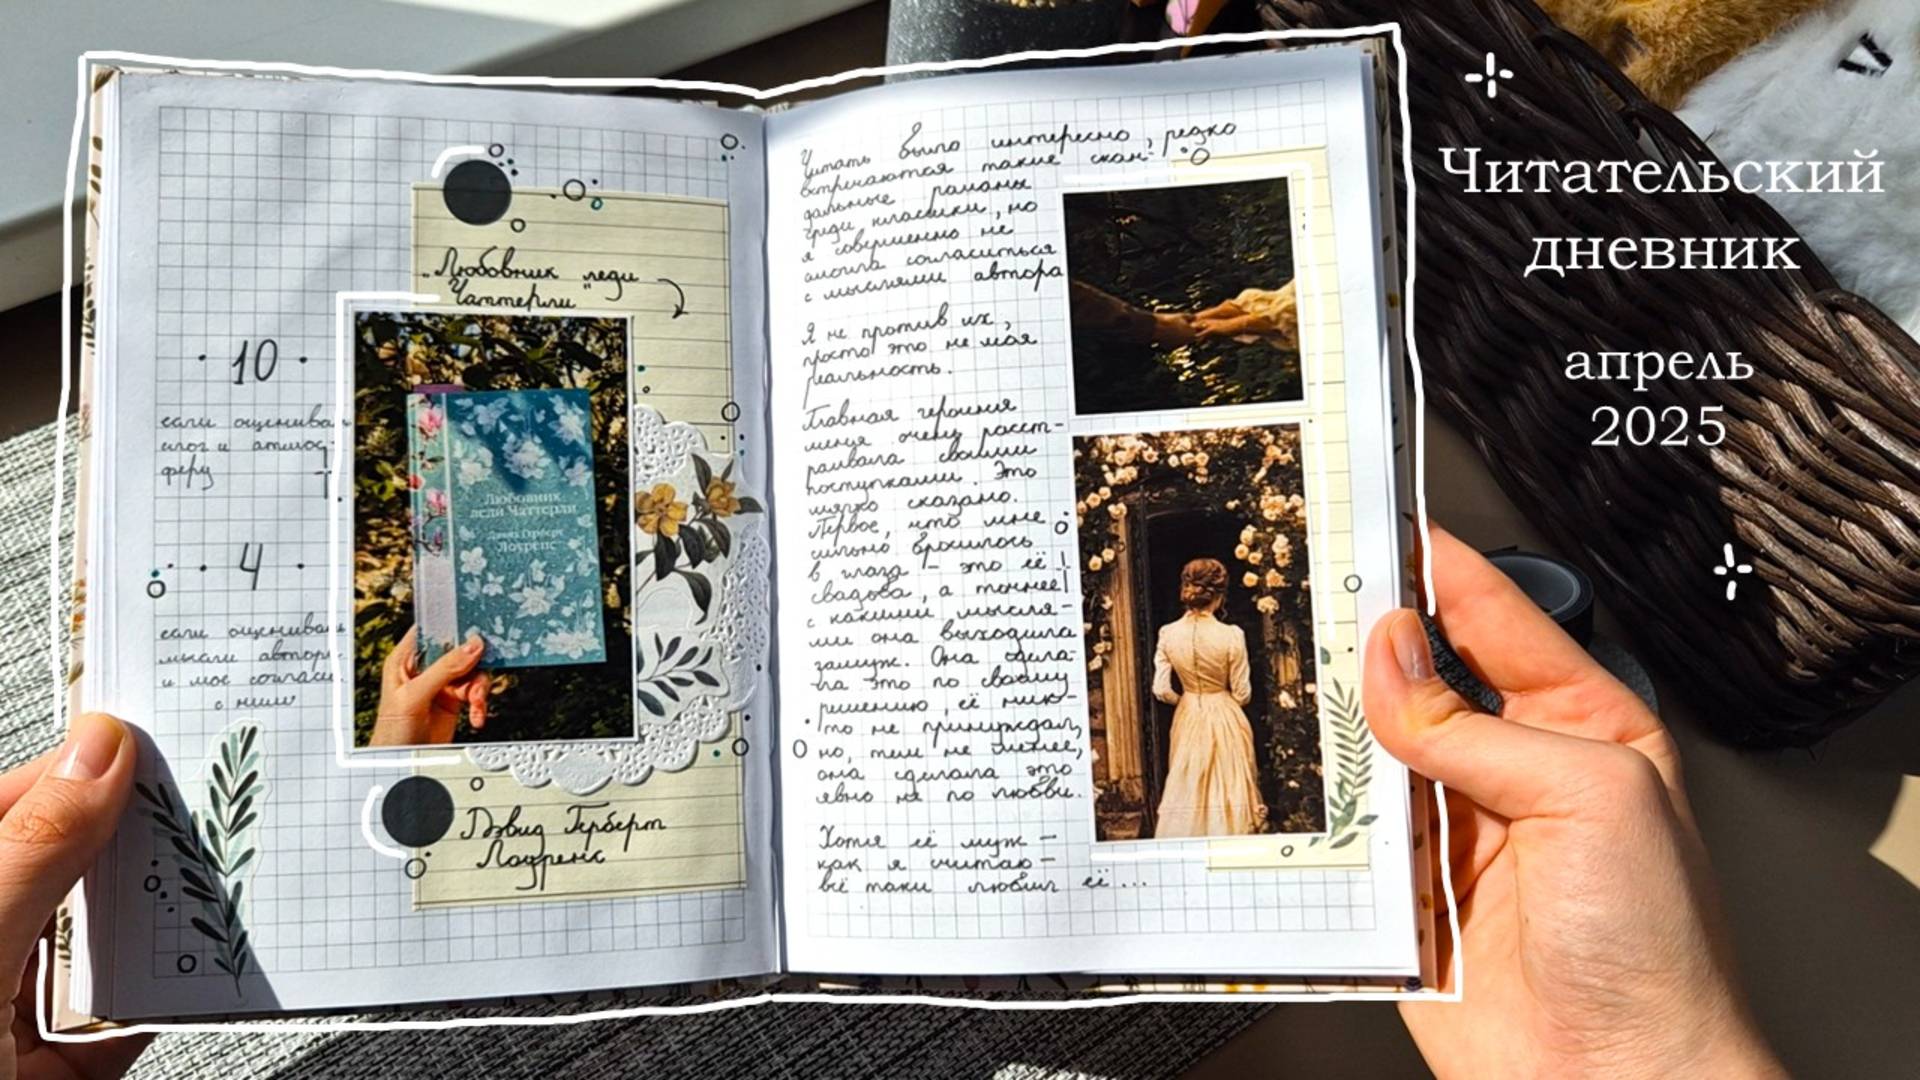 Читательский
дневник
апрель
2025
"Любовник леди
Чаттерли"
· 10 ·
если оценивать
слог и атмос-
феру
· 4 ·
если оценивать
мысли автора
и моё согласие
с ними
Любовник
леди Чаттерли
Дэвид Герберт
Лоуренс
Дэвид Герберт
Лоуренс
Читать было интересно, редко
встречаются такие скан-
дальные романы
среди классики, но
я совершенно не
смогла согласиться
с мыслями автора
Я не против их,
просто это не моя
реальность.
Главная героиня
меня очень расст-
раивала своими
поступками. Это
мягко сказано.
Первое, что мне
сильно бросилось
в глаза - это её
свадьба, а точнее
с какими мысля-
ми она выходила
замуж. Она сдела-
ла это по своему
решению, её ник-
то не принуждал,
но, тем не менее,
она сделала это
явно не по любви.
Хотя её муж -
как я считаю -
всё таки любил её...